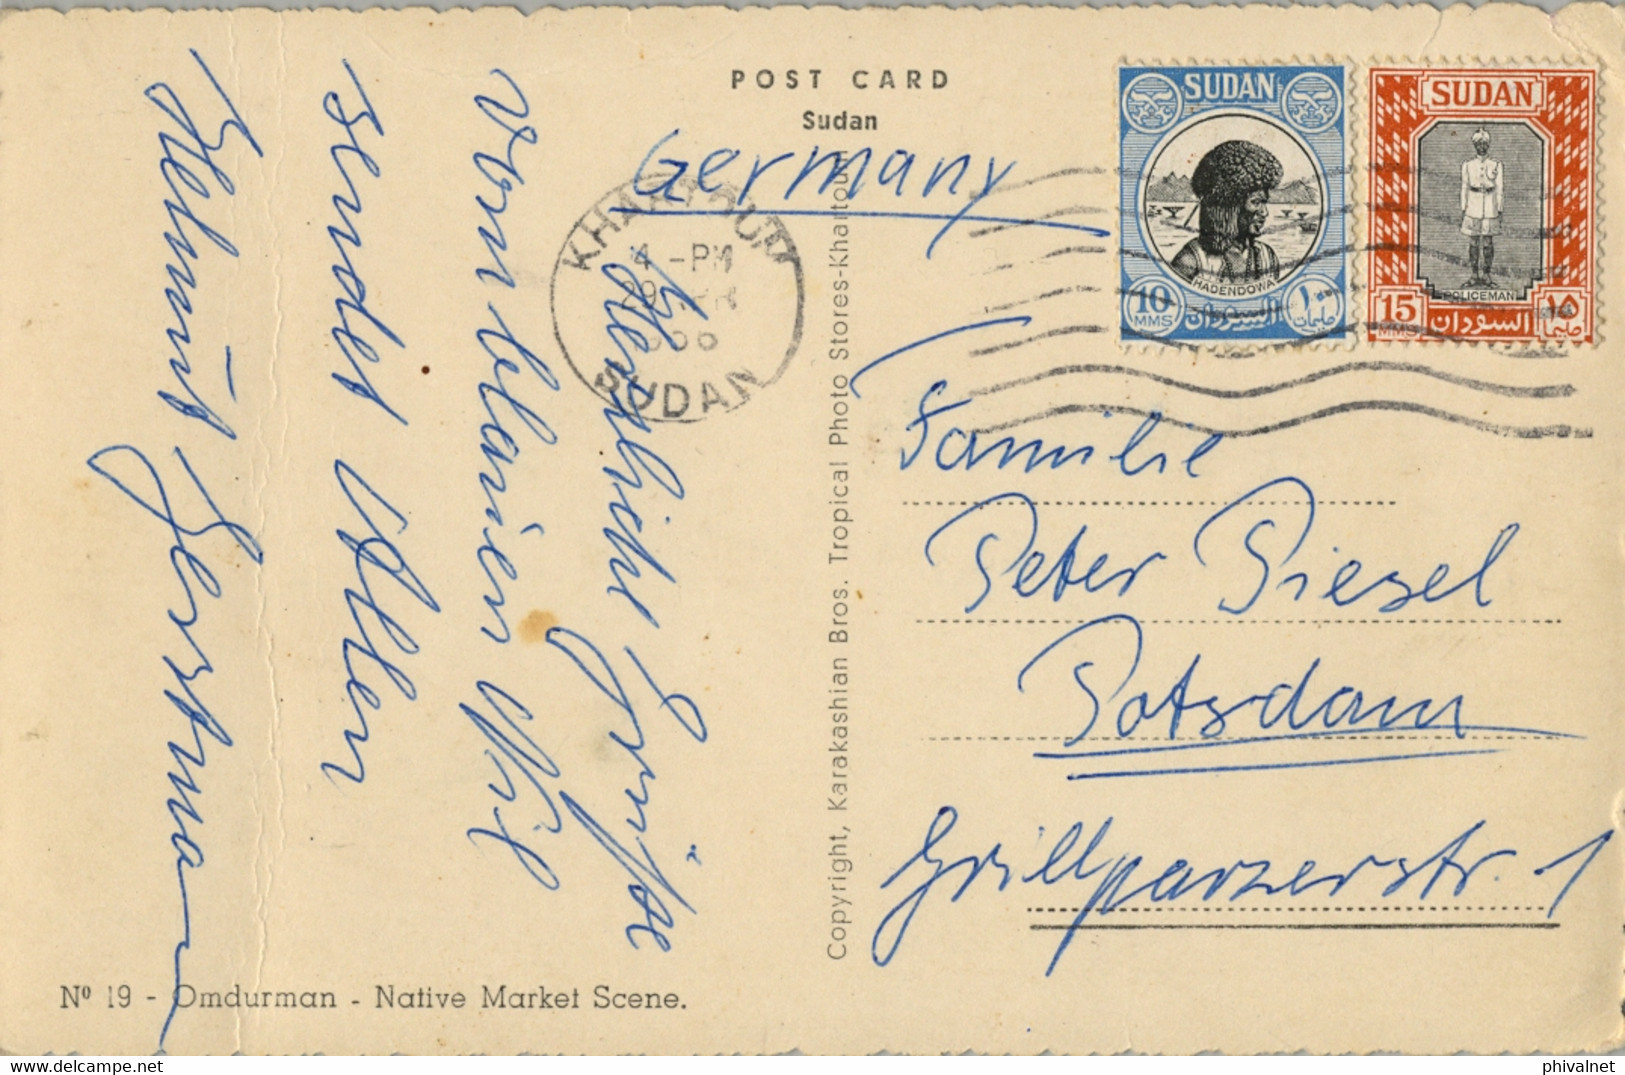 POST CARD
Sudan
Germany
KHARTOUM
4 - PM
29
SUDAN
SUDAN
HADENDOWA
10
MMS
السودان
١٠
مليمات
SUDAN
POLICEMAN
15
MMS
السودان
١٥
مليما
Herzliche Grüsse
Vom blauen Nil
sendet Allen
Helmut Gerstmann
Copyright, Karakashian Bros. Tropical Photo Stores-Khartoum
Familie
Peter Piesel
Potsdam
Grillparzerstr. 1
Nº 19 - Omdurman - Native Market Scene.
phivalnet